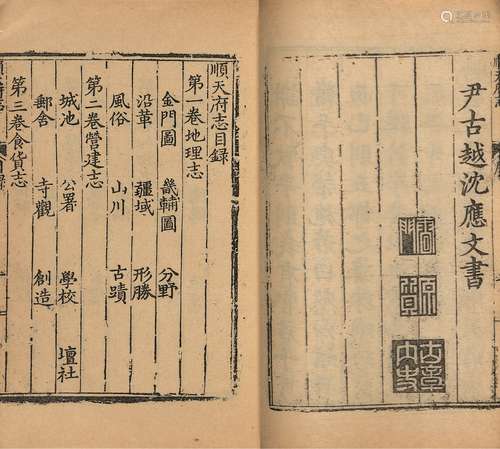 尹古越沈應文書
順天府志目録
第一卷地理志
金門圖 畿輔圖 分野
沿革 疆域 形勝
風俗 山川 古蹟
第二卷營建志
城池 公署 學校 壇社
郵舍 寺觀 創造
第三卷食貨志